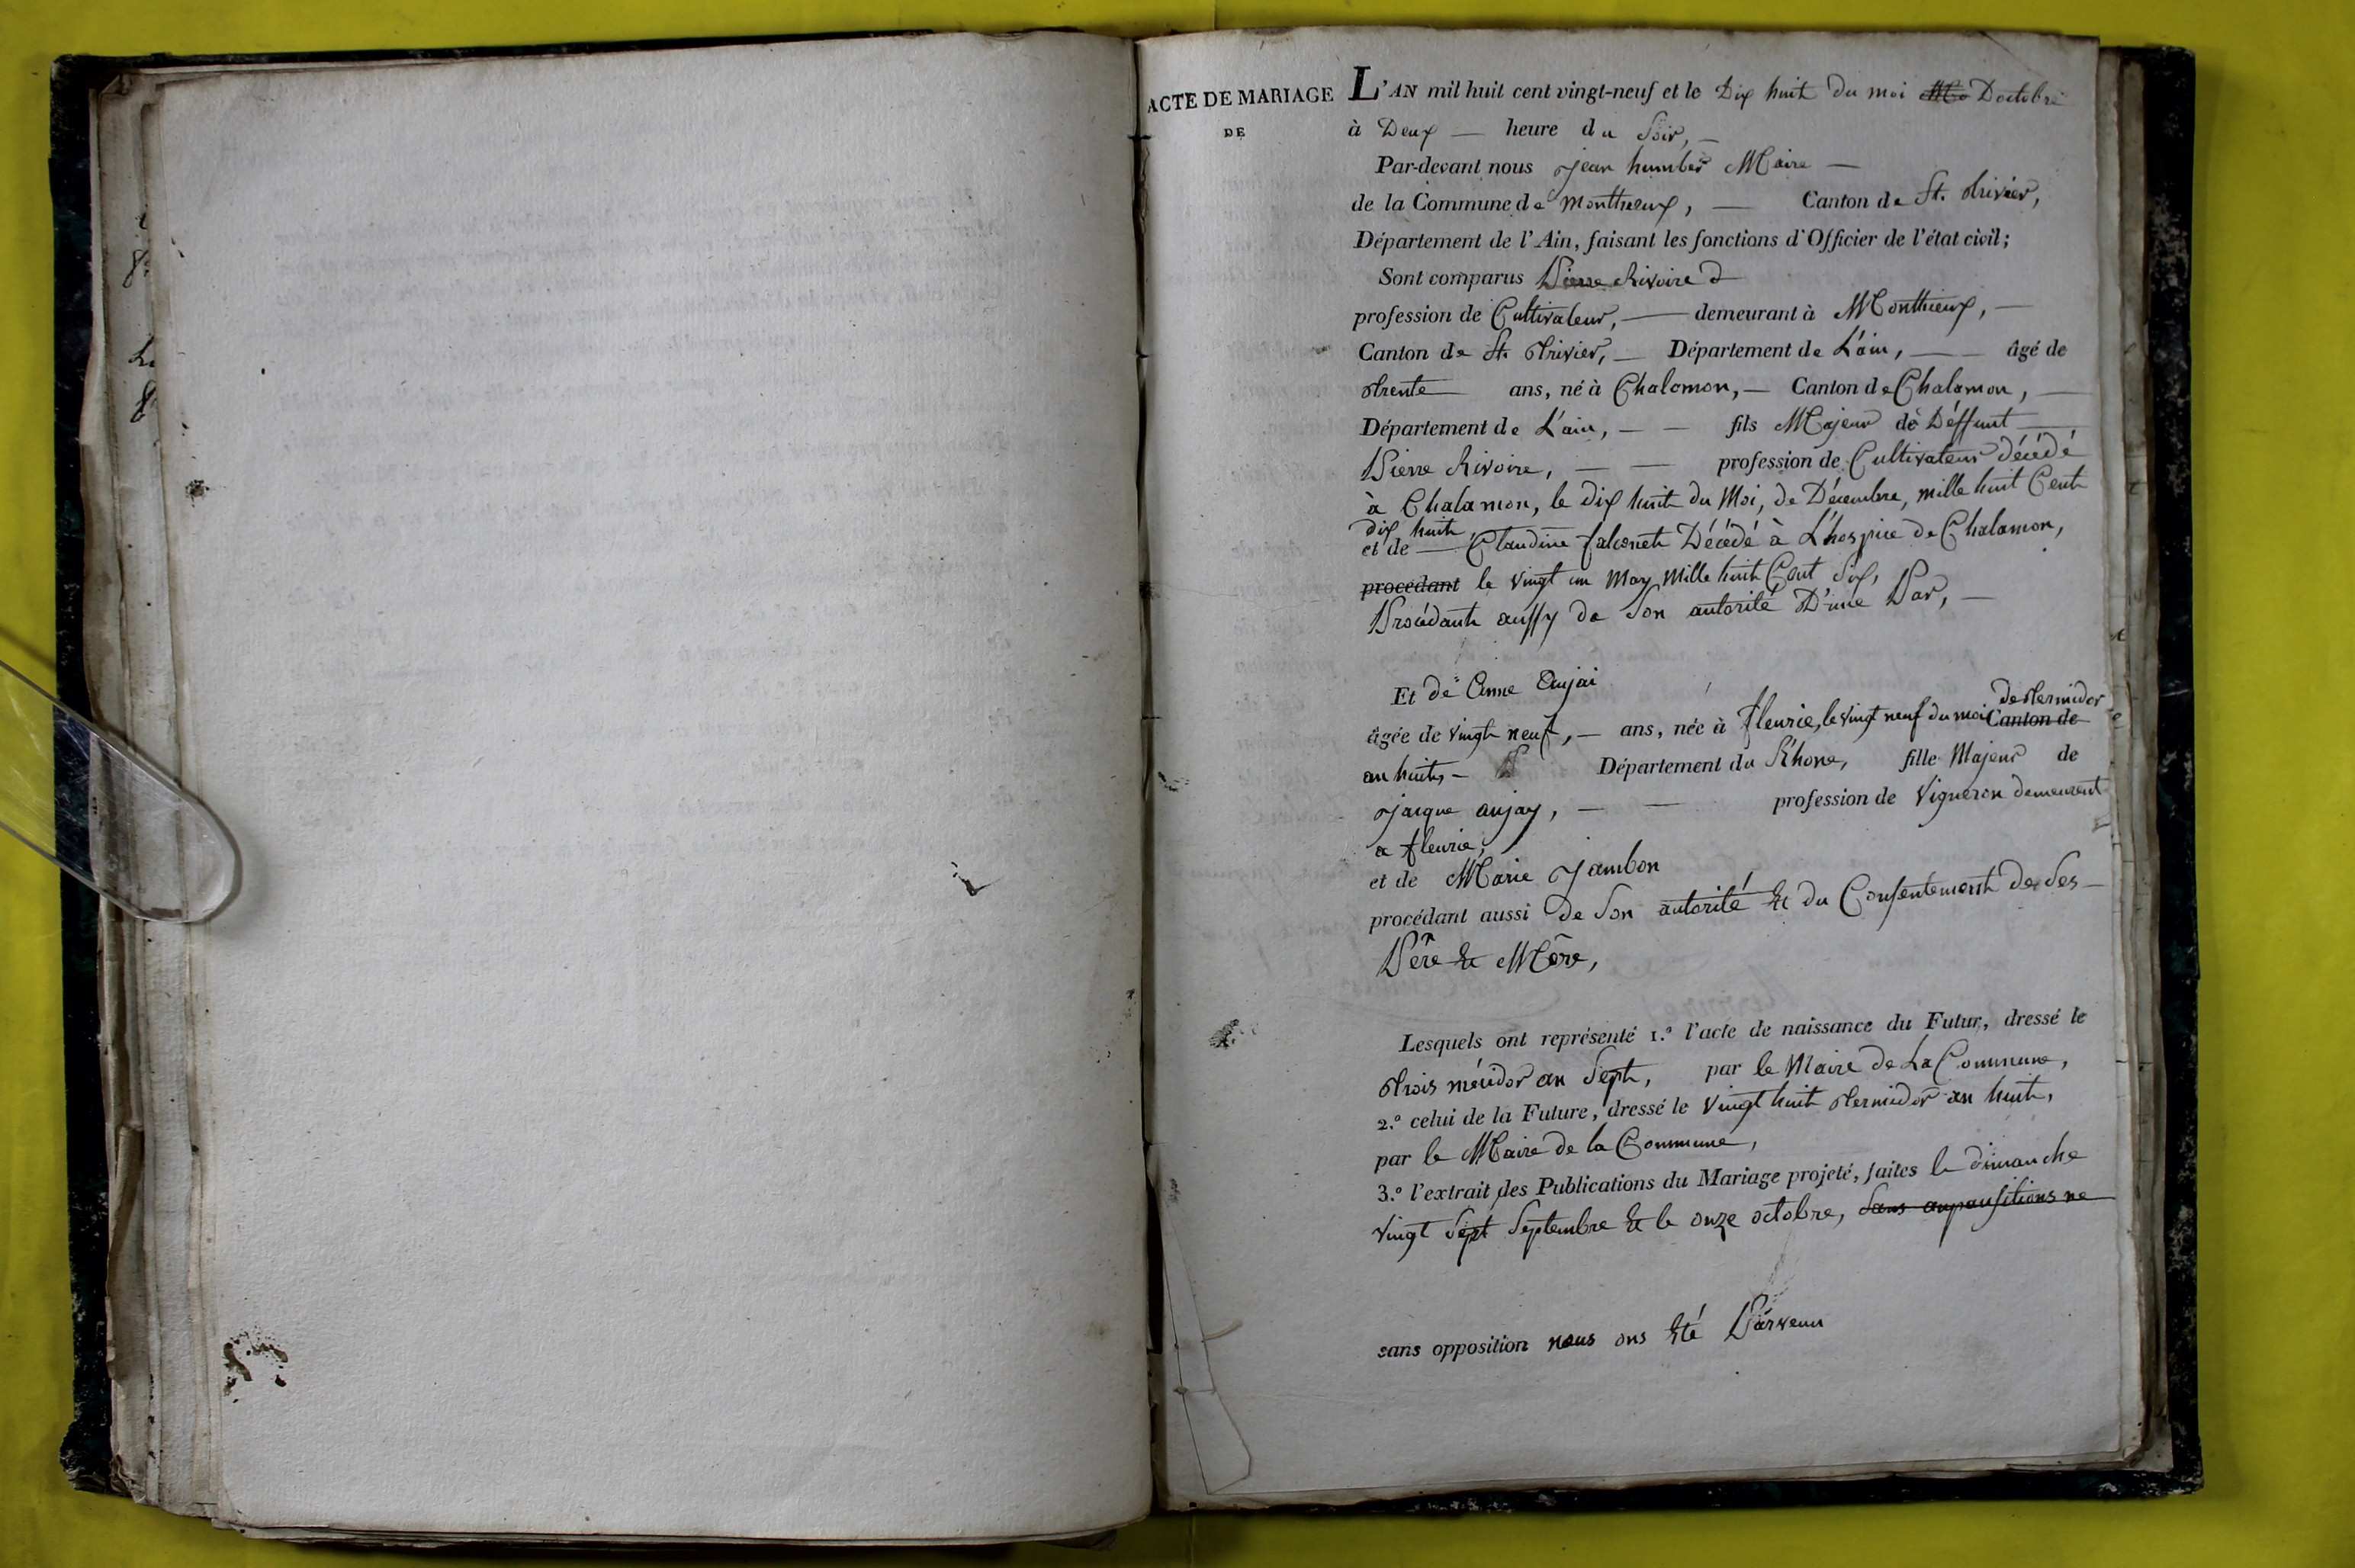 ACTE DE MARIAGE
DE
L'AN mil huit cent vingt-neuf et le Dix huit du moi Doctobre
à Deux — heure du Soir, —
Par-devant nous jean humber Maire —
de la Commune de Monthieux, — Canton de St. trivier,
Département de l'Ain, faisant les fonctions d'Officier de l'état civil;
Sont comparus Pierre Rivoire
profession de Cultivateur, — demeurant à Monthieux, —
Canton de St. trivier, — Département de L'ain, — — âgé de
trente ans, né à Chalamon, — Canton de Chalamon, —
Département de L'ain, — — fils Majeur de Déffunt —
Pierre Rivoire, — — profession de Cultivateur décédé
à Chalamon, le dix huit du Moi, de Décembre, mille huit Cent
dix huit
et de — Claudine falconet Décédé à L'hospice de Chalamon,
procédant le vingt un May Mille huit Cent Six,
Procédant aussy de Son autorité D'une Par, —
Et de Anne Aujai
de termidor
âgée de vingt neuf, — ans, née à fleurie, le vingt neuf du moi Canton de
an huit, — Département du Rhone, fille Majeur de
jacque aujay, — — profession de Vigneron demeurent
a fleurie,
et de Marie jambon
procédant aussi de Son autorité Et du Consentement de Ses —
Père Et Mère,
Lesquels ont représenté 1.º l'acte de naissance du Futur, dressé le
trois mésidor an Sept, par le Maire de La Commune,
2.º celui de la Future, dressé le vingt huit termidor an huit,
par le Maire de la Commune,
3.º l'extrait des Publications du Mariage projeté, faites le dimanche
vingt Sept Septembre Et le onze octobre, Sans aupausitions ne
sans opposition nous ons Eté Parvenu